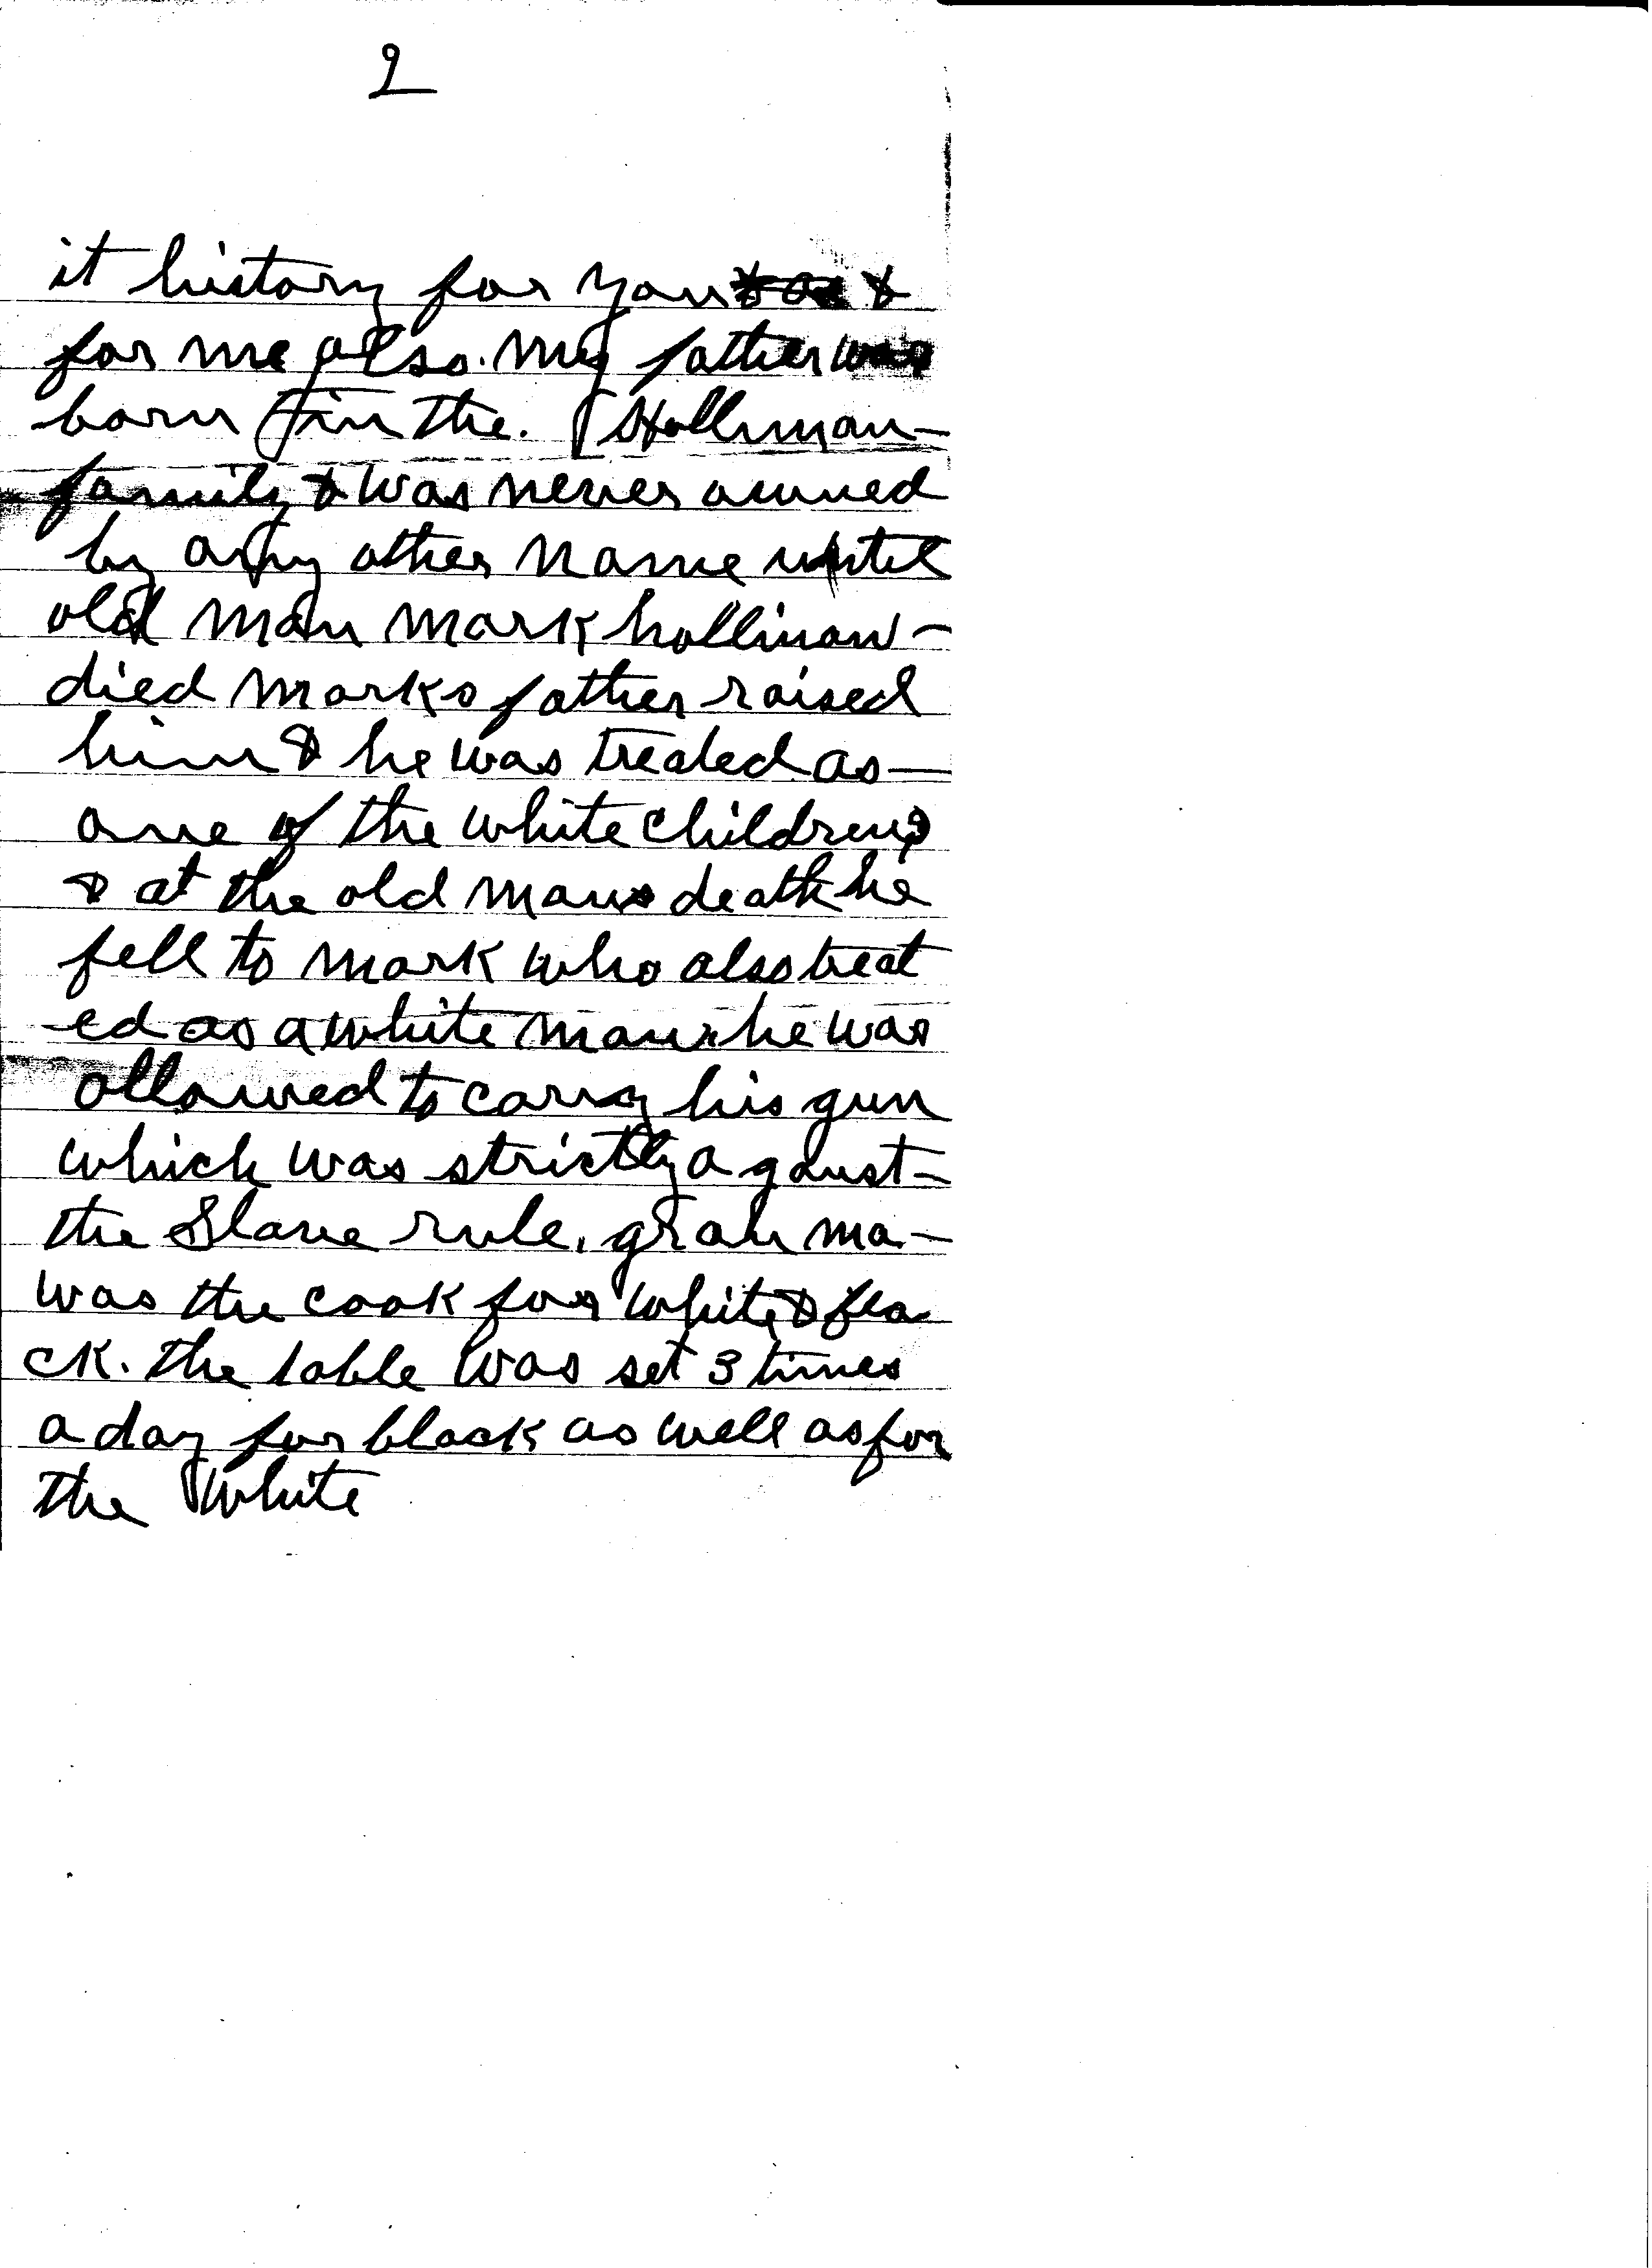 2
it history for you &
for me also. My father was
born in the. Hollinman-
family & was never owned
by any other name until
old man mark hollinan -
died marks father raised
him & he was treated as—
one of the white children,
& at the old mans death he
fell to mark who also treat
-ed as a white man & he was
allowed to carry his gun
which was strictly against-
the Slave rule. gran ma-
was the cook for white & bla
ck. the table was set 3 times
a day for black as well as for
the White